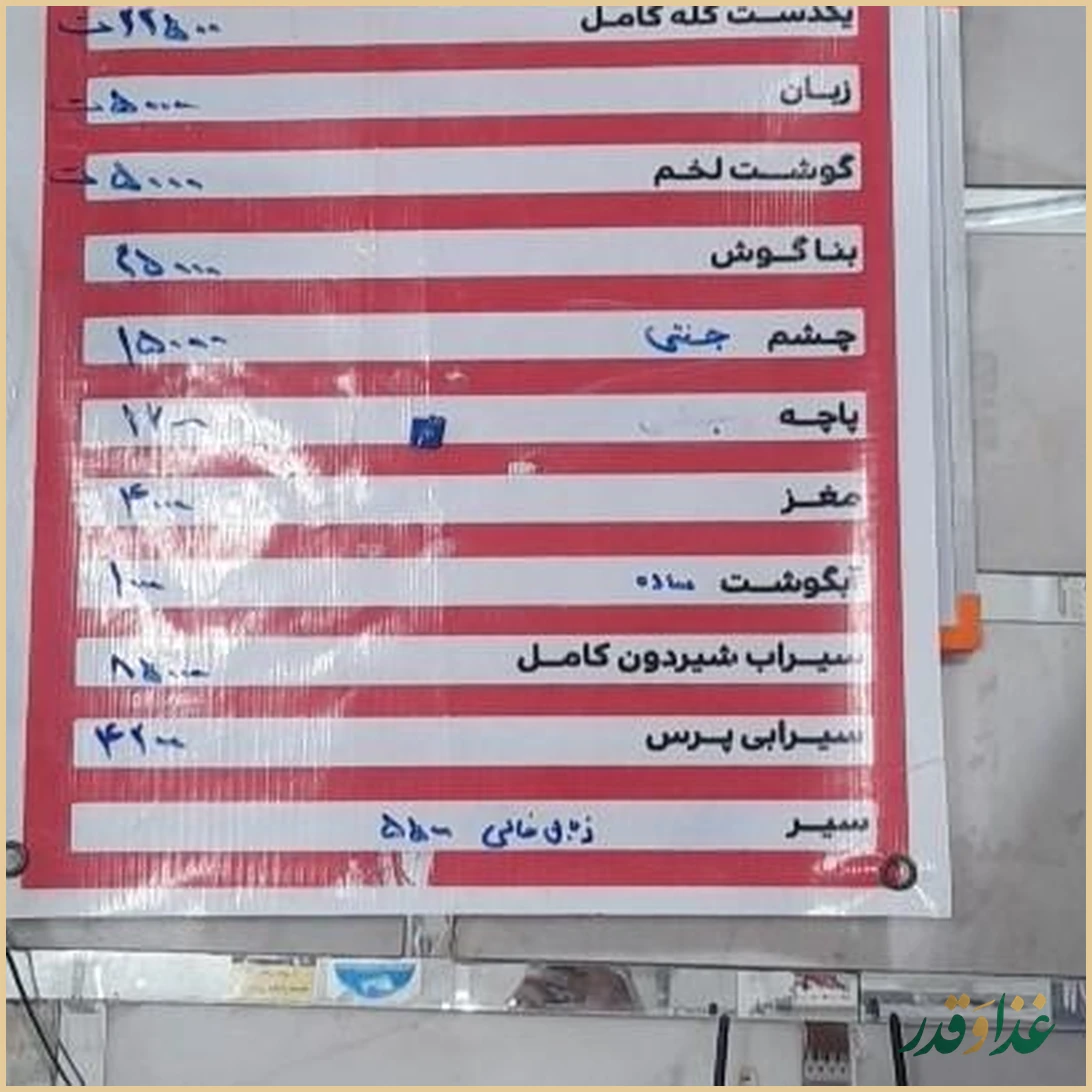 یکدست کله کامل ۲۲۵۰۰ ت
زبان ۵۰۰۰۰ ت
گوشت لخم ۵۰۰۰۰ ت
بنا گوش ۴۵۰۰۰
چشم جنتی ۱۵۰۰۰
پاچه ۱۷۰۰
مغز ۴۰۰۰
آبگوشت ساده ۱۰۰۰
سیراب شیردون کامل ۸۵۰۰۰
سیرابی پرس ۴۲۰۰
سیر زبان خالی ۵۵۰۰
غذا و قدر